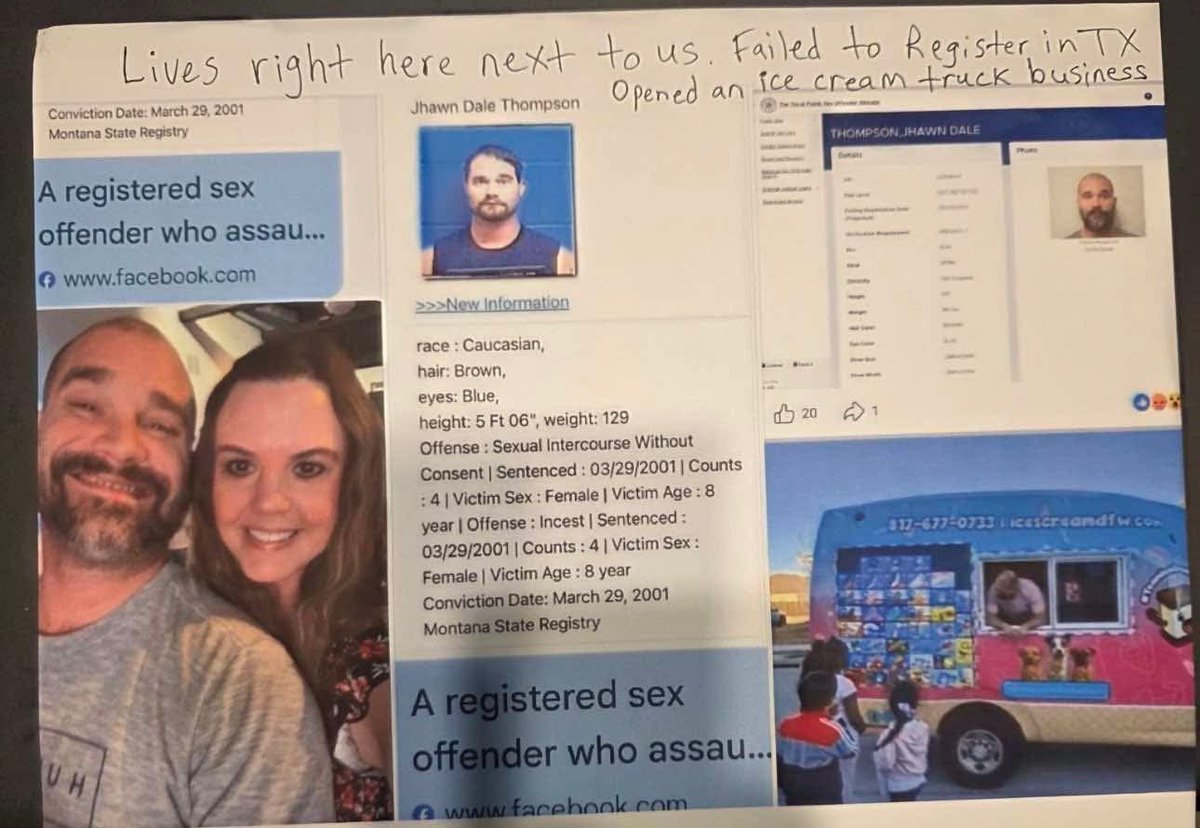 Lives right here next to us. Failed to Register in TX
Opened an ice cream truck business
Conviction Date: March 29, 2001
Montana State Registry
A registered sex
offender who assau...
www.facebook.com
UH
Jhawn Dale Thompson
>>>New Information
race : Caucasian,
hair: Brown,
eyes: Blue,
height: 5 Ft 06", weight: 129
Offense : Sexual Intercourse Without
Consent | Sentenced : 03/29/2001 | Counts
: 4 | Victim Sex : Female | Victim Age : 8
year | Offense : Incest | Sentenced :
03/29/2001 | Counts : 4 | Victim Sex :
Female | Victim Age : 8 year
Conviction Date: March 29, 2001
Montana State Registry
A registered sex
offender who assau...
www.facebook.com
THOMPSON,JHAWN DALE
Details
Photo
Height
Weight
Hair Color
Eye Color
Shoe Size
Shoe Width
20
1
817-677-0733 | icescreamdfw.com